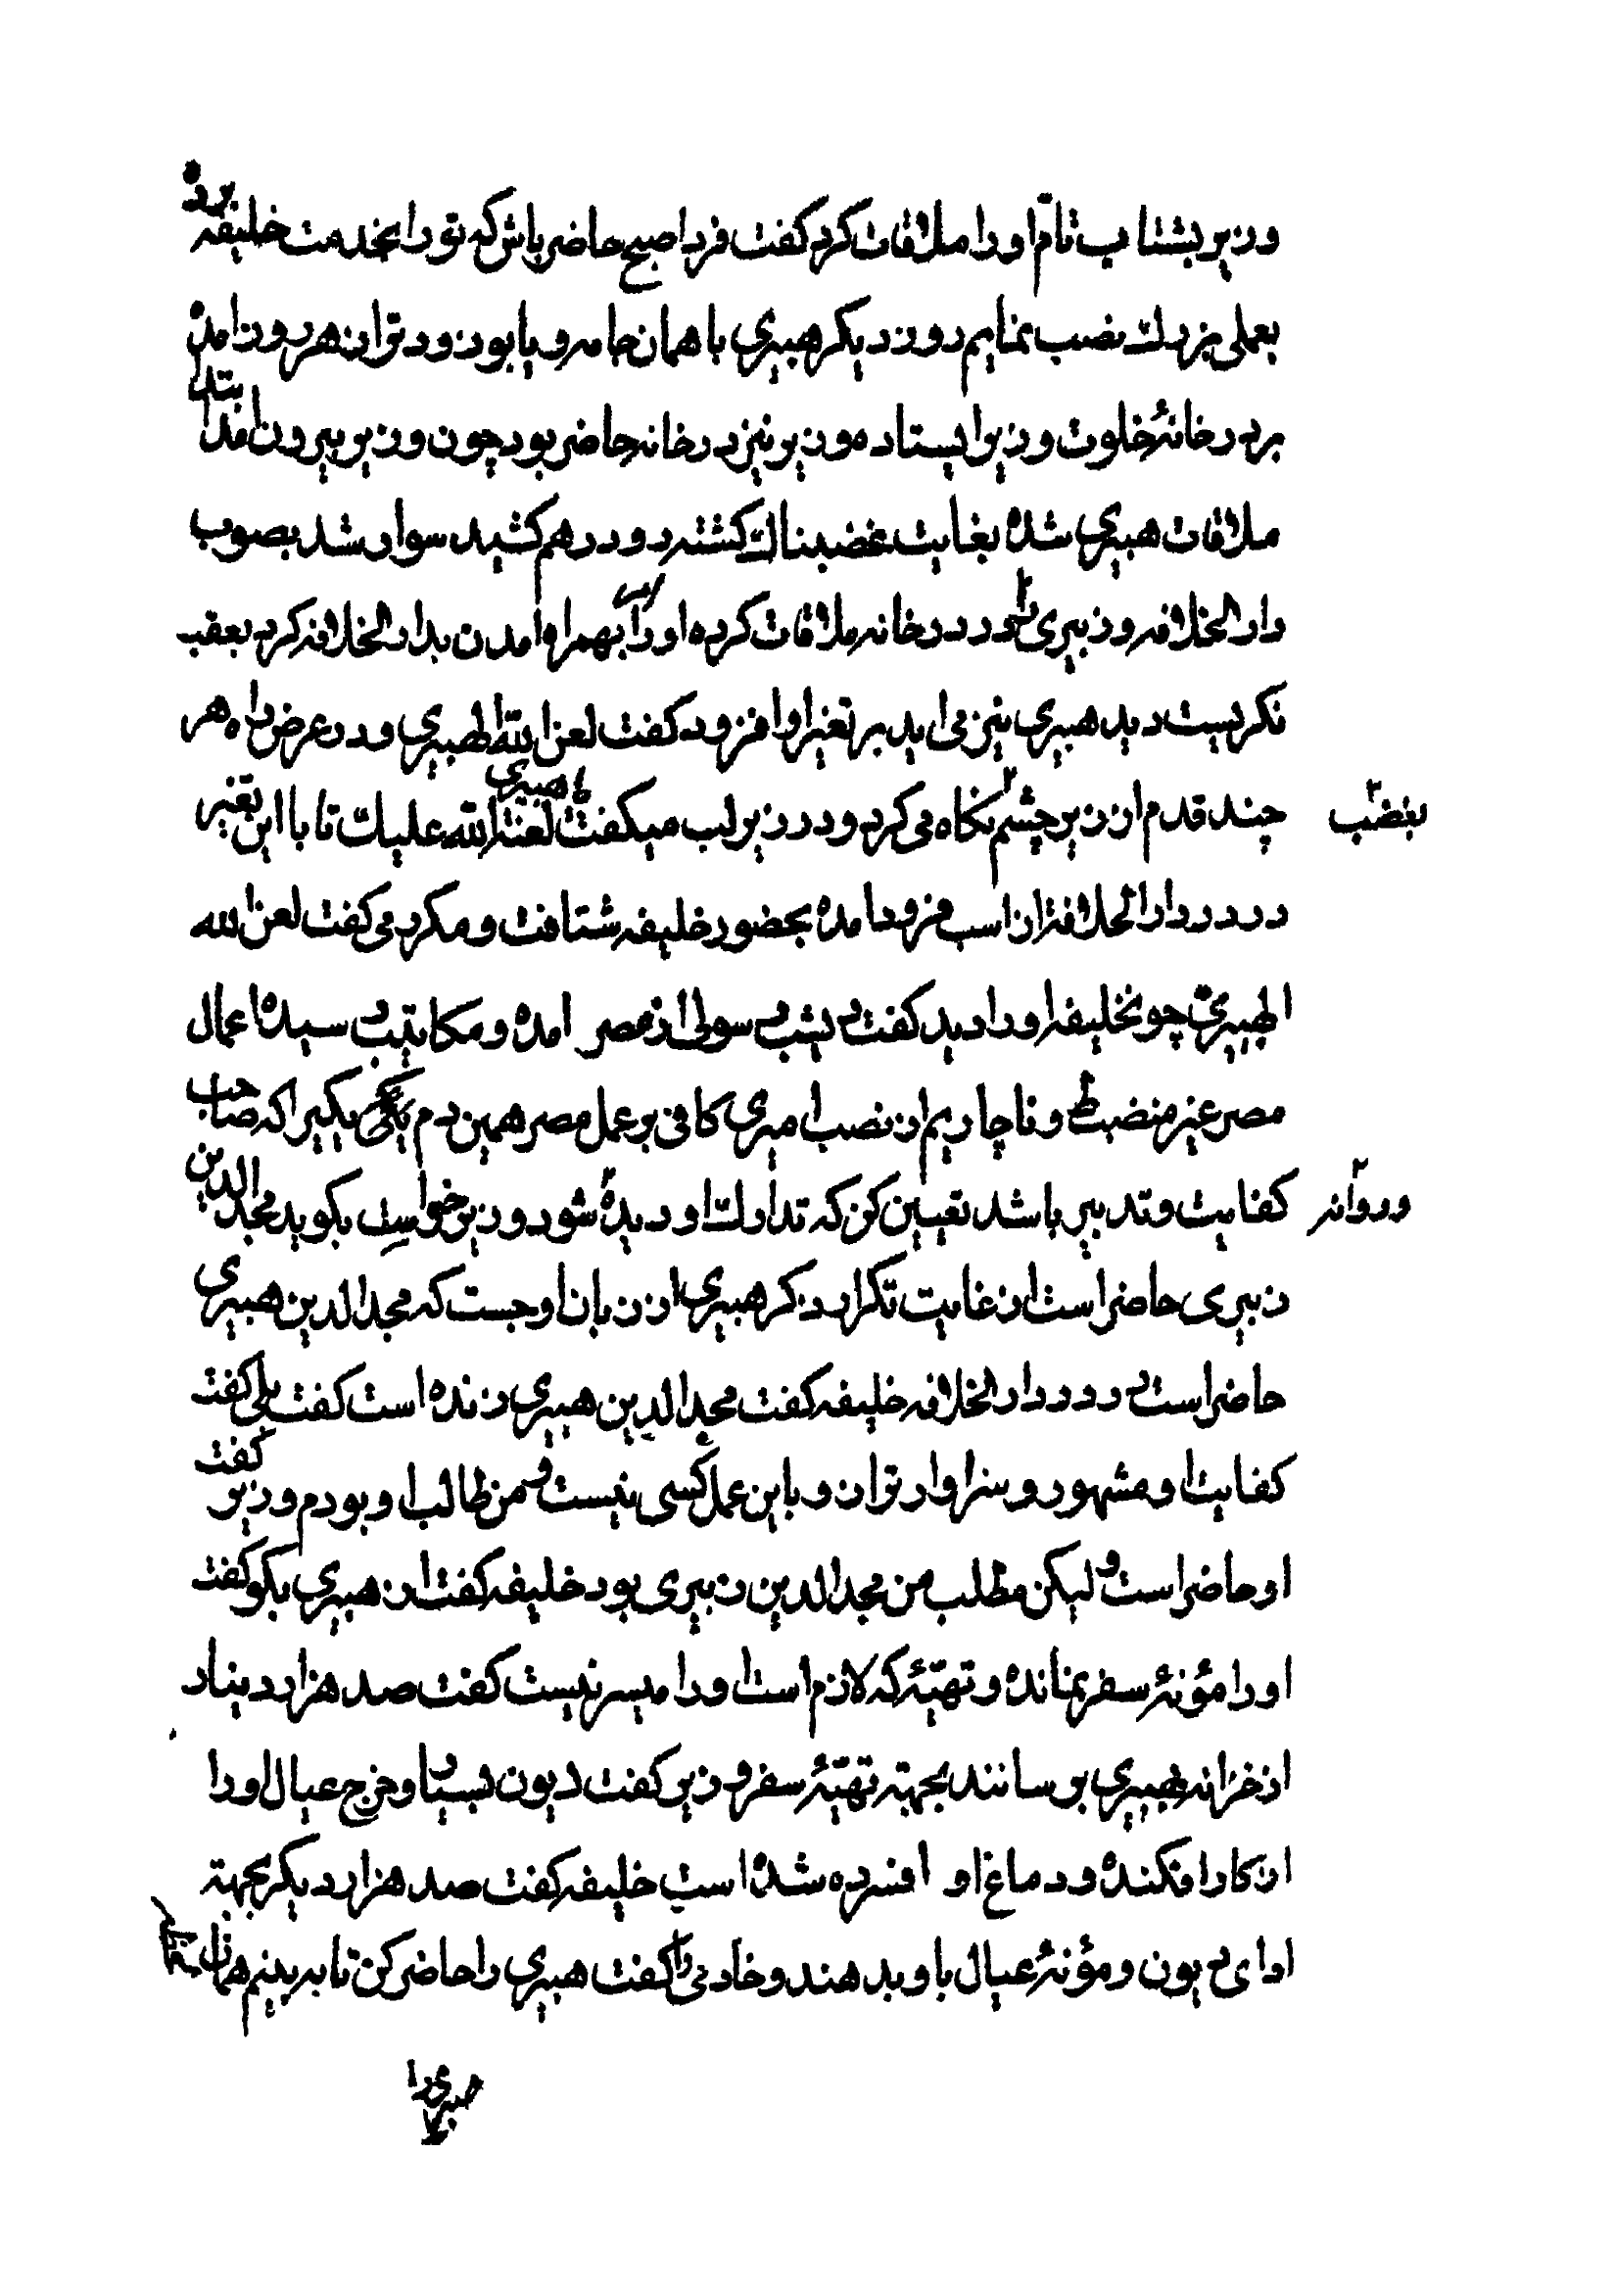 وزیر بشتاب تمام اورا ملاقات کرد کفت فردا صبح حاضر باش که تورا بخدمت خلیفه برده
بعملی بزرك نصب نمایم روز دیکر هبیری با همان جامه و پابوزود تر از هر روز امده
بر در خانهٔ خلوت وزیر ایستاده وزیر نیز در خانه حاضر بود چون وزیر بیرون امد ابتدا
ملاقات هبیری شده بغایت غضبناك کشته رو درهم کشید سوار شد بصوب
دار الخلافه و زبیری را در در خانه ملاقات کرده اورا امر بهمراه امدن بدار الخلافه کرد بعقب
نکریست دید هبیری نیز می اید بر تغیر او افزود کفت لعن الله الهبیری و در عرض راه هر
چند قدم از زیر چشم نکاه می کرد و در زیر لب میکفت لعنة الله علیك یا هبیری تا با این تغیر
بغضب
در در دار الخلافه از اسب فرود امده بحضور خلیفه شتافت و مکرر می کفت لعن الله
الهبیری چون خلیفه اورا دید کفت دیشب رسولی از مصر امده و مکاتیب رسیده اعمال
مصر غیر منضبط و ناچاریم از نصب امیری کافی بر عمل مصر همین دم یکی بکیر اکه صاحب
کفایت و تدبیر باشد تعیین کن که تدارك او دیده شود وزیر خواست بکوید مجد الدین
و روانه
زبیری حاضر است از غایت تکرار ذکر هبیری از زبان او جست که مجد الدین هبیری
حاضر است در در دار الخلافه خلیفه کفت مجد الدین هبیری زنده است کفت بلی کفت
کفایت او مشهور و سزاوار تر از و باین عمل کسی نیست و من طالب او بودم وزیر کفت
او حاضر است و لیکن مطلب من مجد الدین زبیری بود خلیفه کفت از هبیری بکو کفت
اورا مؤنهٔ سفر نمانده و تهیّهٔ که لازم است اورا میسر نیست کفت صد هزار دینار
از خزانه بهبیری برسانند بجهته تهیّهٔ سفر وزیر کفت دیون بسیار و خرج عیال اورا
از کار افکنده و دماغ او افسرده شده است خلیفه کفت صد هزار دیکر بجهته
ادای دیون و مؤنهٔ عیال باو بدهند و خادمی را کفت هبیری را حاضر کن تا به بینم همان
هبیری را